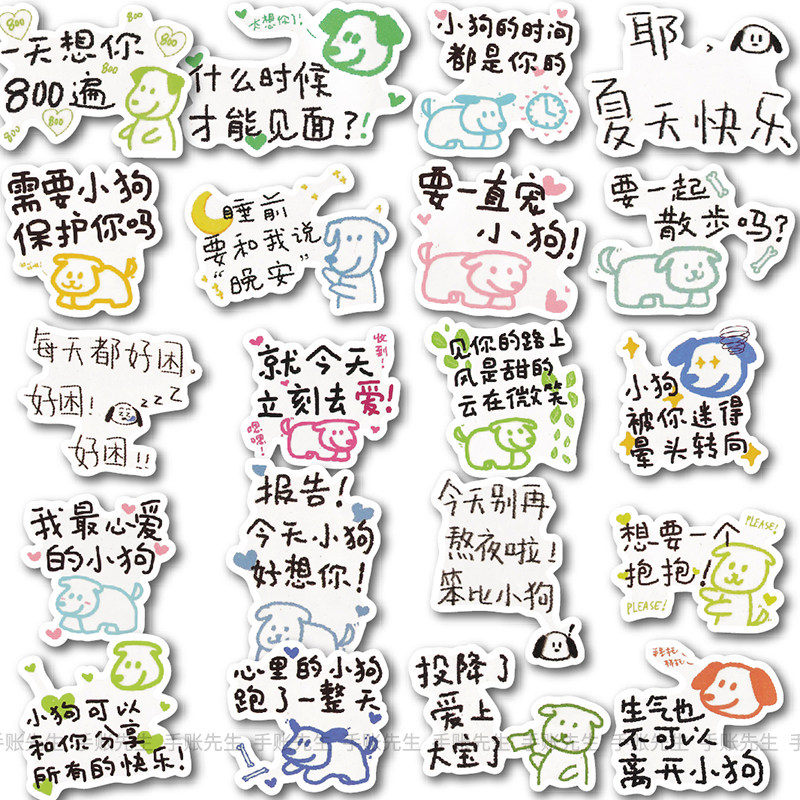 一天想你
800遍
800
800
800
800
800
太想你了!
什么时候
才能见面?!
小狗的时间
都是你的
耶,
夏天快乐
需要小狗
保护你吗
睡前
要和我说
“晚安”
要一直宠
小狗!
要一起
散步吗?
每天都好困。
好困! zzz
好困!!
收到!
就今天
立刻去爱!
嗯嗯!
见你的路上
风是甜的
云在微笑
小狗
被你迷得
晕头转向
我最心爱
的小狗
报告!
今天小狗
好想你!
今天别再
熬夜啦!
笨比小狗
!
PLEASE!
想要一个
抱抱!
PLEASE!
小狗可以
和你分享
所有的快乐!
心里的小狗
跑了一整天
投降了
爱上
大宝了
生气也
不可以
离开小狗
手账先生 手账先生 手账先生 手账先生 手账先生 手账先生 手账先生 手账先生